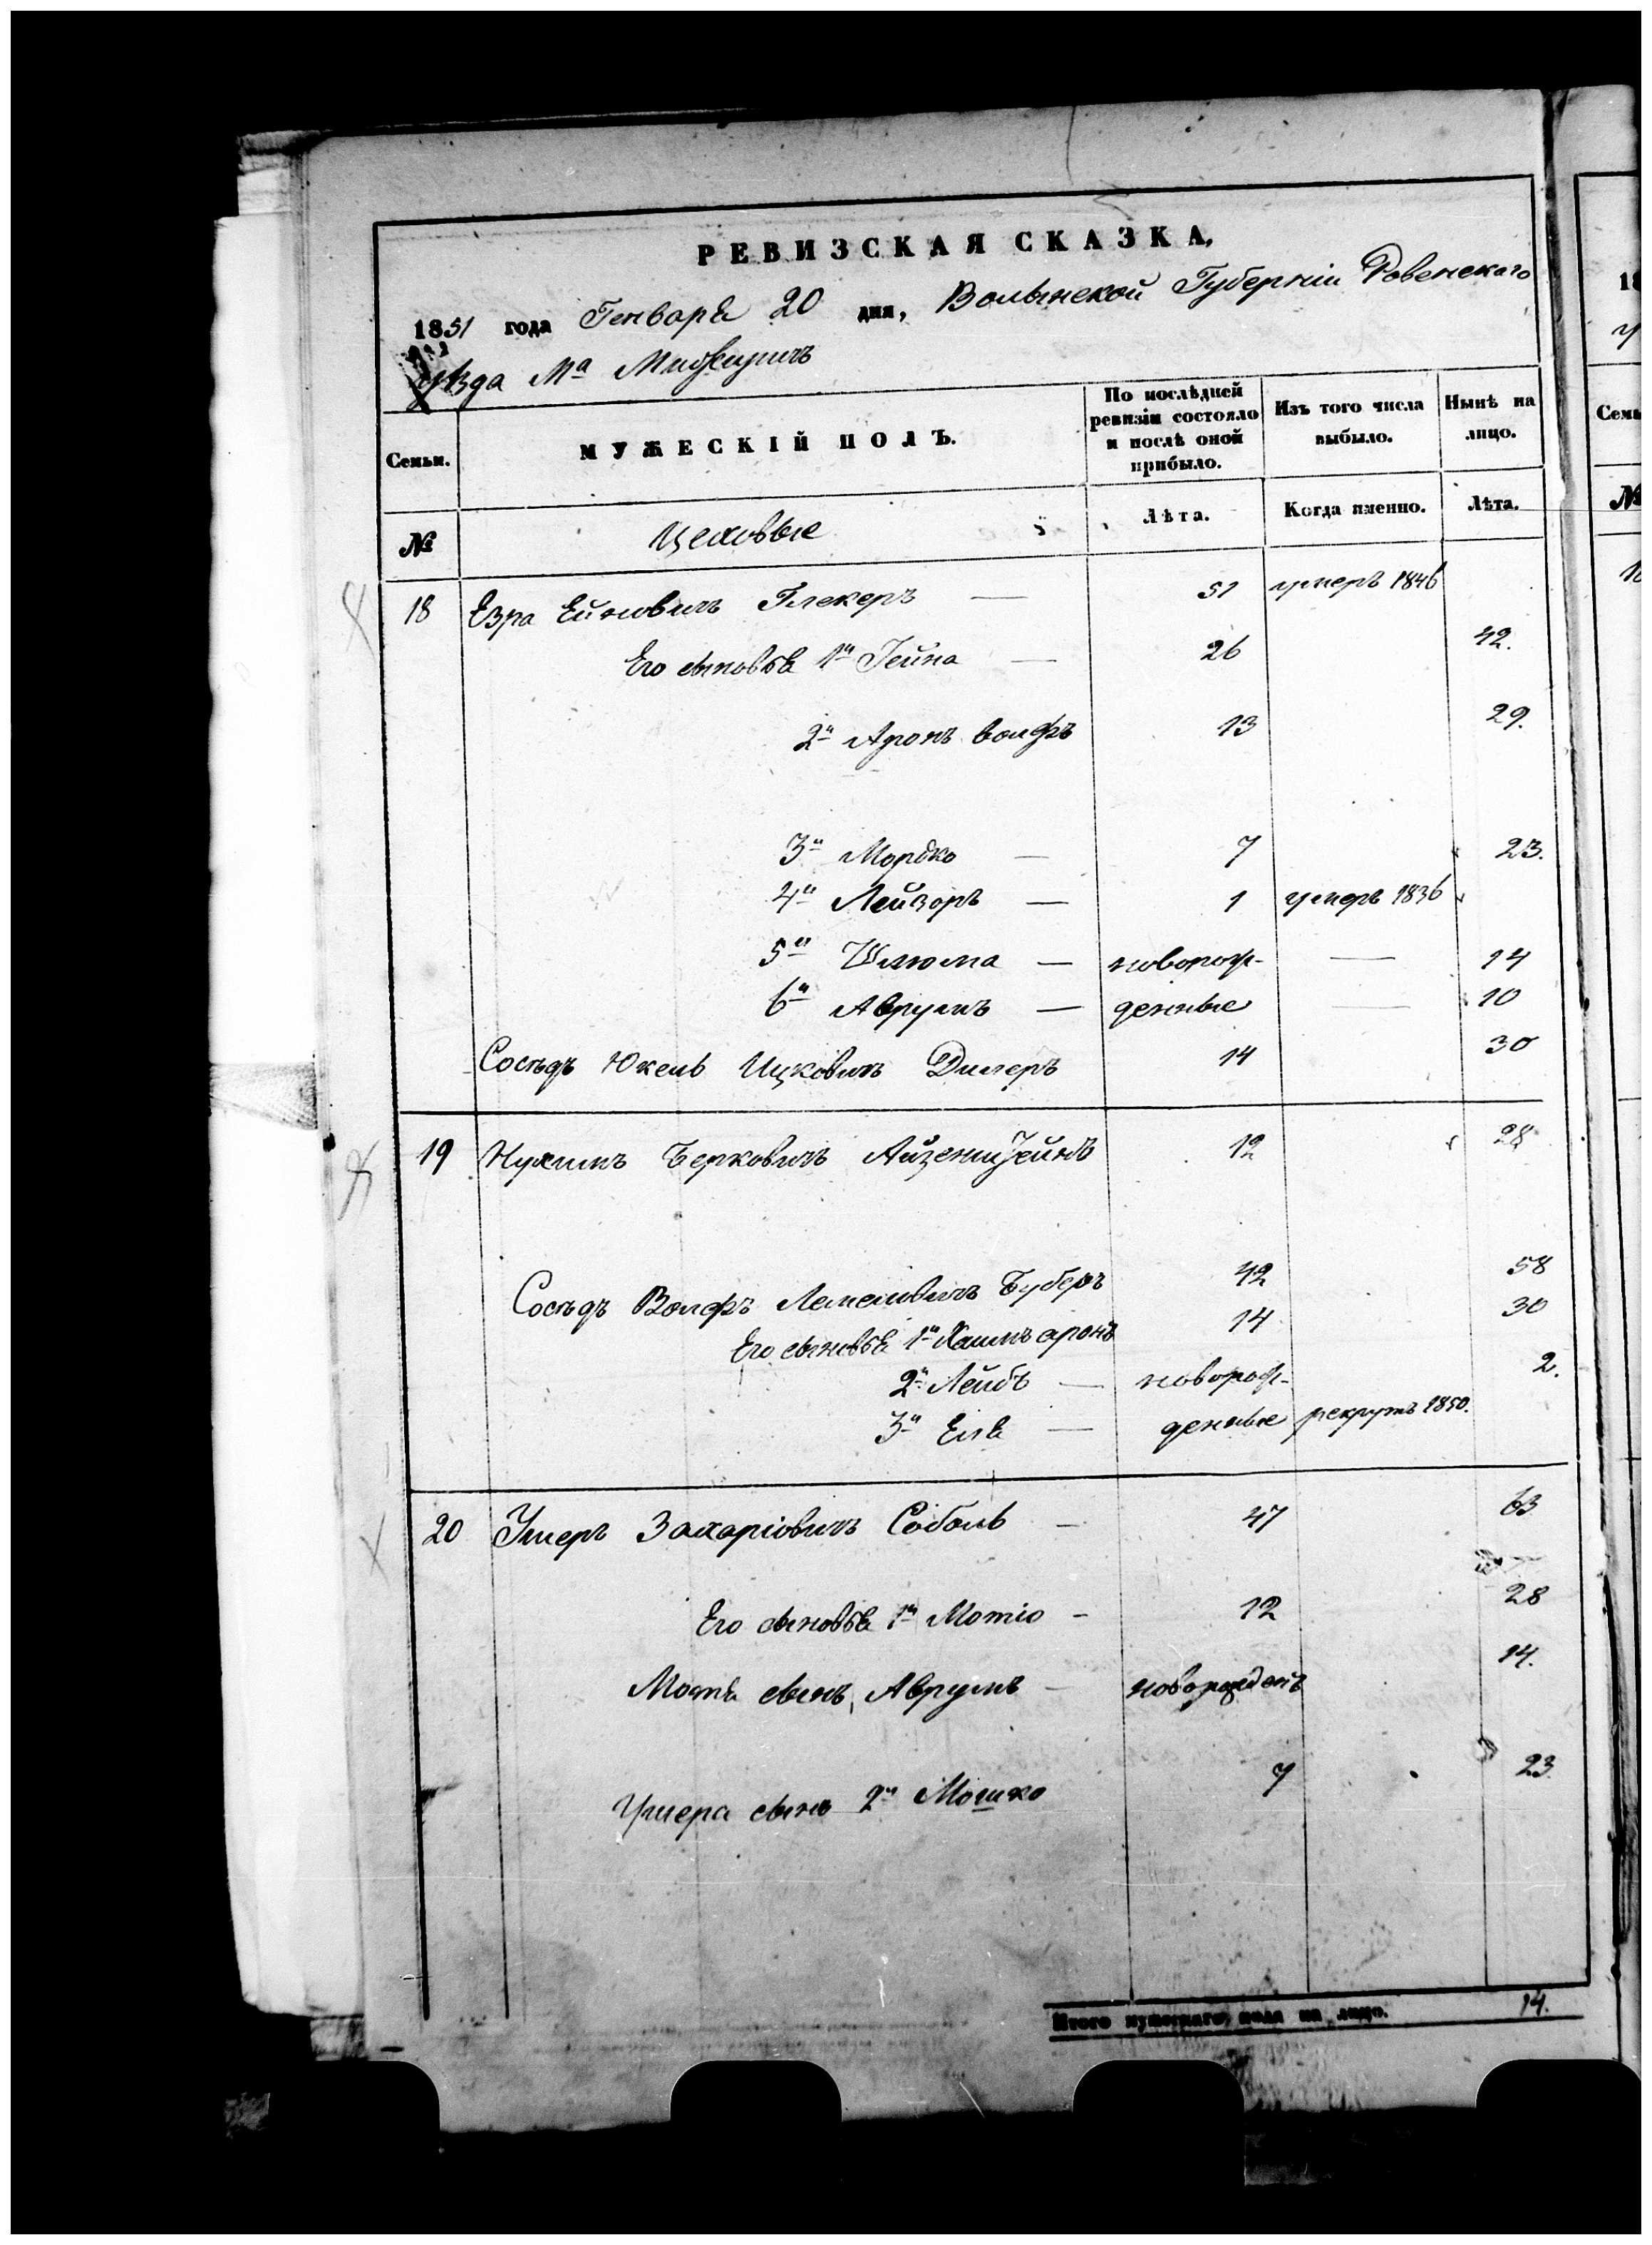 РЕВИЗСКАЯ СКАЗКА,
1851 года Генваря 20 дня, Волынской Губерніи Ровенскаго
уѣзда Мª Межиричъ
Семьи. МУЖЕСКІЙ ПОЛЪ. По послѣдней ревизіи состояло и послѣ оной прибыло. Изъ того числа выбыло. Нынѣ на лицо.
№ Цеховые Лѣта. Когда именно. Лѣта.
18 Езра Ейновичъ Глекеръ — 51 умеръ 1846
Его сыновья 1й Гейна — 26 42.
2й Аронъ Волфъ 13 29.
3й Мордко — 7 23.
4й Лейзоръ — 1 умеръ 1836
5й Шлюма — новорож- — 14
6й Аврумъ — денные — 10
Сосѣдъ Юкель Ицковичъ Дилеръ 14 30
19 Нухимъ Берковичъ 12 28
Сосѣдъ Волфъ Лемелевичъ Буберъ 42 58
Его сыновья 1й Хаимъ аронъ 14 30
2й Лейбъ — новорож- 2.
3й Еля — денные рекрутъ 1850.
20 Умеръ Захаріовичъ Соболь — 47 63
Его сыновья 1й Мотіо — 12 28
Мотя сынъ, Аврумъ — новорожденъ 14.
Умера сынъ 2й Мошко 7 23
Итого мужескаго пола на лицо. 14.
18
Семьи
№